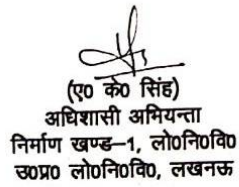 (ए० के० सिंह)
अधिशासी अभियन्ता
निर्माण खण्ड–1, लो०नि०वि०
उ०प्र० लो०नि०वि०, लखनऊ